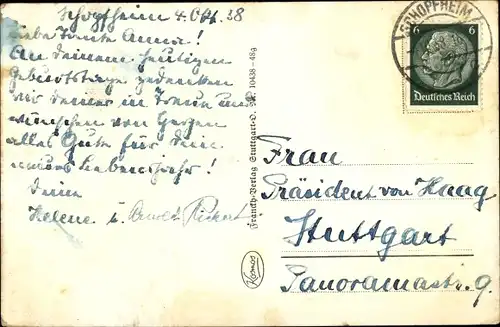 Schopfheim 4. Okt. 38
Liebe Tante Anna!
An Deinem heutigen
Geburtstage gedenken
wir Deiner in Treue und
wünschen von Herzen
alles Gute für Dein
neues Lebensjahr!
Deine
Helene u. Arnold
Franckh-Verlag Stuttgart-O. 10438-48g
Kosmos
SCHOPFHEIM
6 6
Deutsches Reich
Frau
Präsident von Haag
Stuttgart
Panoramastr. 9.